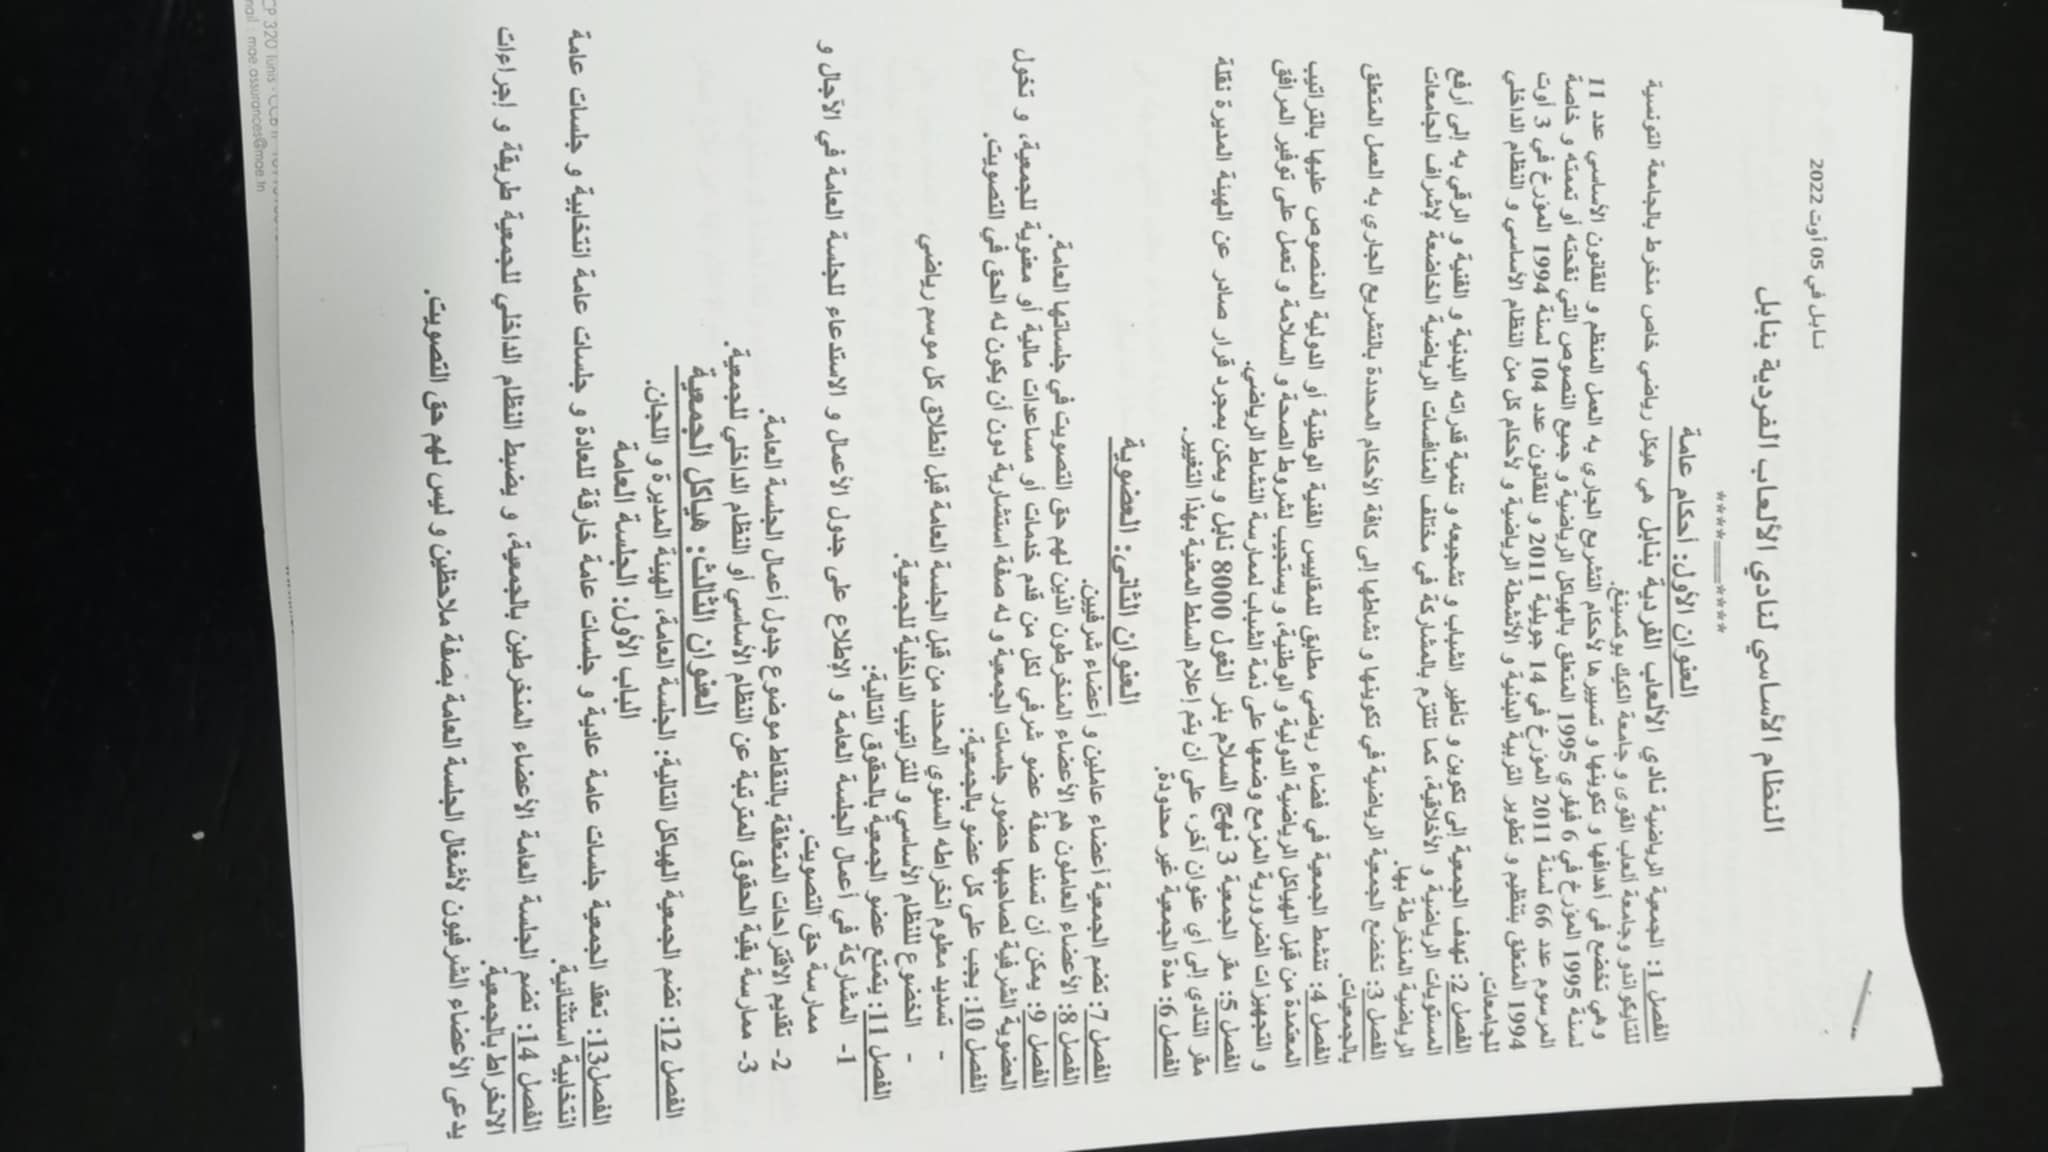 نابل في 05 أوت 2022
النظام الأساسي لنادي الألعاب الفردية بنابل
****___****
العنوان الأول: أحكام عامة
الفصل 1: الجمعية الرياضية نادي الألعاب الفردية بنابل هي هيكل رياضي خاص منخرط بالجامعة التونسية
للتايكواندو وجامعة ألعاب القوى و جامعة الكيك بوكسينغ.
وهي تخضع في أهدافها و تكوينها و تسييرها لأحكام التشريع الجاري به العمل المنظم و للقانون الأساسي عدد 11
لسنة 1995 المؤرخ في 6 فيفري 1995 المتعلق بالهياكل الرياضية و جميع النصوص التي نقحته أو تممته و خاصة
المرسوم عدد 66 لسنة 2011 المؤرخ في 14 جويلية 2011 و للقانون عدد 104 لسنة 1994 المؤرخ في 3 أوت
1994 المتعلق بتنظيم و تطوير التربية البدنية و الأنشطة الرياضية و لأحكام كل من النظام الأساسي و النظام الداخلي
للجامعات.
الفصل 2: تهدف الجمعية إلى تكوين و تاطير الشباب و تشجيعه و تنمية قدراته البدنية و الفنية و الرقي به إلى أرفع
المستويات الرياضية و الأخلاقية، كما تلتزم بالمشاركة في مختلف المنافسات الرياضية الخاضعة لإشراف الجامعات
الرياضية المنخرطة بها.
الفصل 3: تخضع الجمعية الرياضية في تكوينها و نشاطها إلى كافة الأحكام المحددة بالتشريع الجاري به العمل المتعلق
بالجمعيات.
الفصل 4: تنشط الجمعية في فضاء رياضي مطابق للمقاييس الفنية الوطنية أو الدولية المنصوص عليها بالتراتيب
المعتمدة من قبل الهياكل الرياضية الدولية و الوطنية، و يستجيب لشروط الصحة و السلامة و تعمل على توفير المرافق
و التجهيزات الضرورية المزمع وضعها على ذمة الشباب لممارسة النشاط الرياضي.
الفصل 5: مقر الجمعية 3 نهج السلام بئر الغول 8000 نابل و يمكن بمجرد قرار صادر عن الهيئة المديرة نقلة
مقر النادي إلى أي عنوان آخر، على أن يتم إعلام السلط المعنية بهذا التغيير.
الفصل 6: مدة الجمعية غير محدودة.
العنوان الثاني: العضوية
الفصل 7: تضم الجمعية أعضاء عاملين و أعضاء شرفيين.
الفصل 8: الأعضاء العاملون هم الأعضاء المنخرطون الذين لهم حق التصويت في جلساتها العامة.
الفصل 9: يمكن أن تسند صفة عضو شرفي لكل من قدم خدمات أو مساعدات مالية أو معنوية للجمعية، و تخول
العضوية الشرفية لصاحبها حضور جلسات الجمعية و له صفة استشارية دون أن يكون له الحق في التصويت.
الفصل 10: يجب على كل عضو بالجمعية:
- تسديد معلوم انخراطه السنوي المحدد من قبل الجلسة العامة قبل انطلاق كل موسم رياضي
- الخضوع للنظام الأساسي و للتراتيب الداخلية للجمعية
الفصل 11: يتمتع عضو الجمعية بالحقوق التالية:
1- المشاركة في أعمال الجلسة العامة و الإطلاع على جدول الأعمال و الاستدعاء للجلسة العامة في الآجال و
ممارسة حق التصويت.
2- تقديم الاقتراحات المتعلقة بالنقاط موضوع جدول أعمال الجلسة العامة.
3- ممارسة بقية الحقوق المترتبة عن النظام الأساسي أو النظام الداخلي للجمعية.
العنوان الثالث: هياكل الجمعية
الفصل 12: تضم الجمعية الهياكل التالية: الجلسة العامة، الهيئة المديرة و اللجان.
الباب الأول: الجلسة العامة
الفصل13: تعقد الجمعية جلسات عامة عادية و جلسات عامة خارقة للعادة و جلسات عامة انتخابية و جلسات عامة
انتخابية استثنائية.
الفصل 14: تضم الجلسة العامة الأعضاء المنخرطين بالجمعية، و يضبط النظام الداخلي للجمعية طريقة و إجراءات
الانخراط بالجمعية.
يدعى الأعضاء الشرفيون لأشغال الجلسة العامة بصفة ملاحظين و ليس لهم حق التصويت.
CP 320 Tunis - CCB
mail : mae.assurances@mae.tn